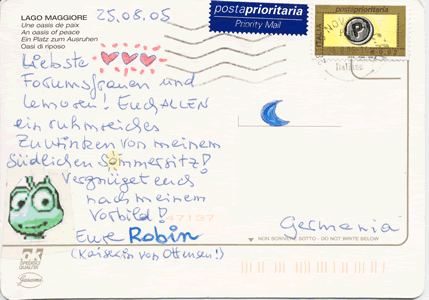 LAGO MAGGIORE
Une oasis de paix
An oasis of peace
Ein Platz zum Ausruhen
Oasi di riposo
25.08.05
postaprioritaria
Priority Mail
ITALIA
Liebste
Forumsfrauen und
Lemoren! Euch ALLEN
ein ruhmreiches
Zuwinken von meinem
südlichen Sommersitz!
Vergnüget euch
nach meinem
Vorbild!
Eure Robin
(Kaiserin von Ottensen!)
47137
Germania
NON SCRIVERE SOTTO - DO NOT WRITE BELOW
OK